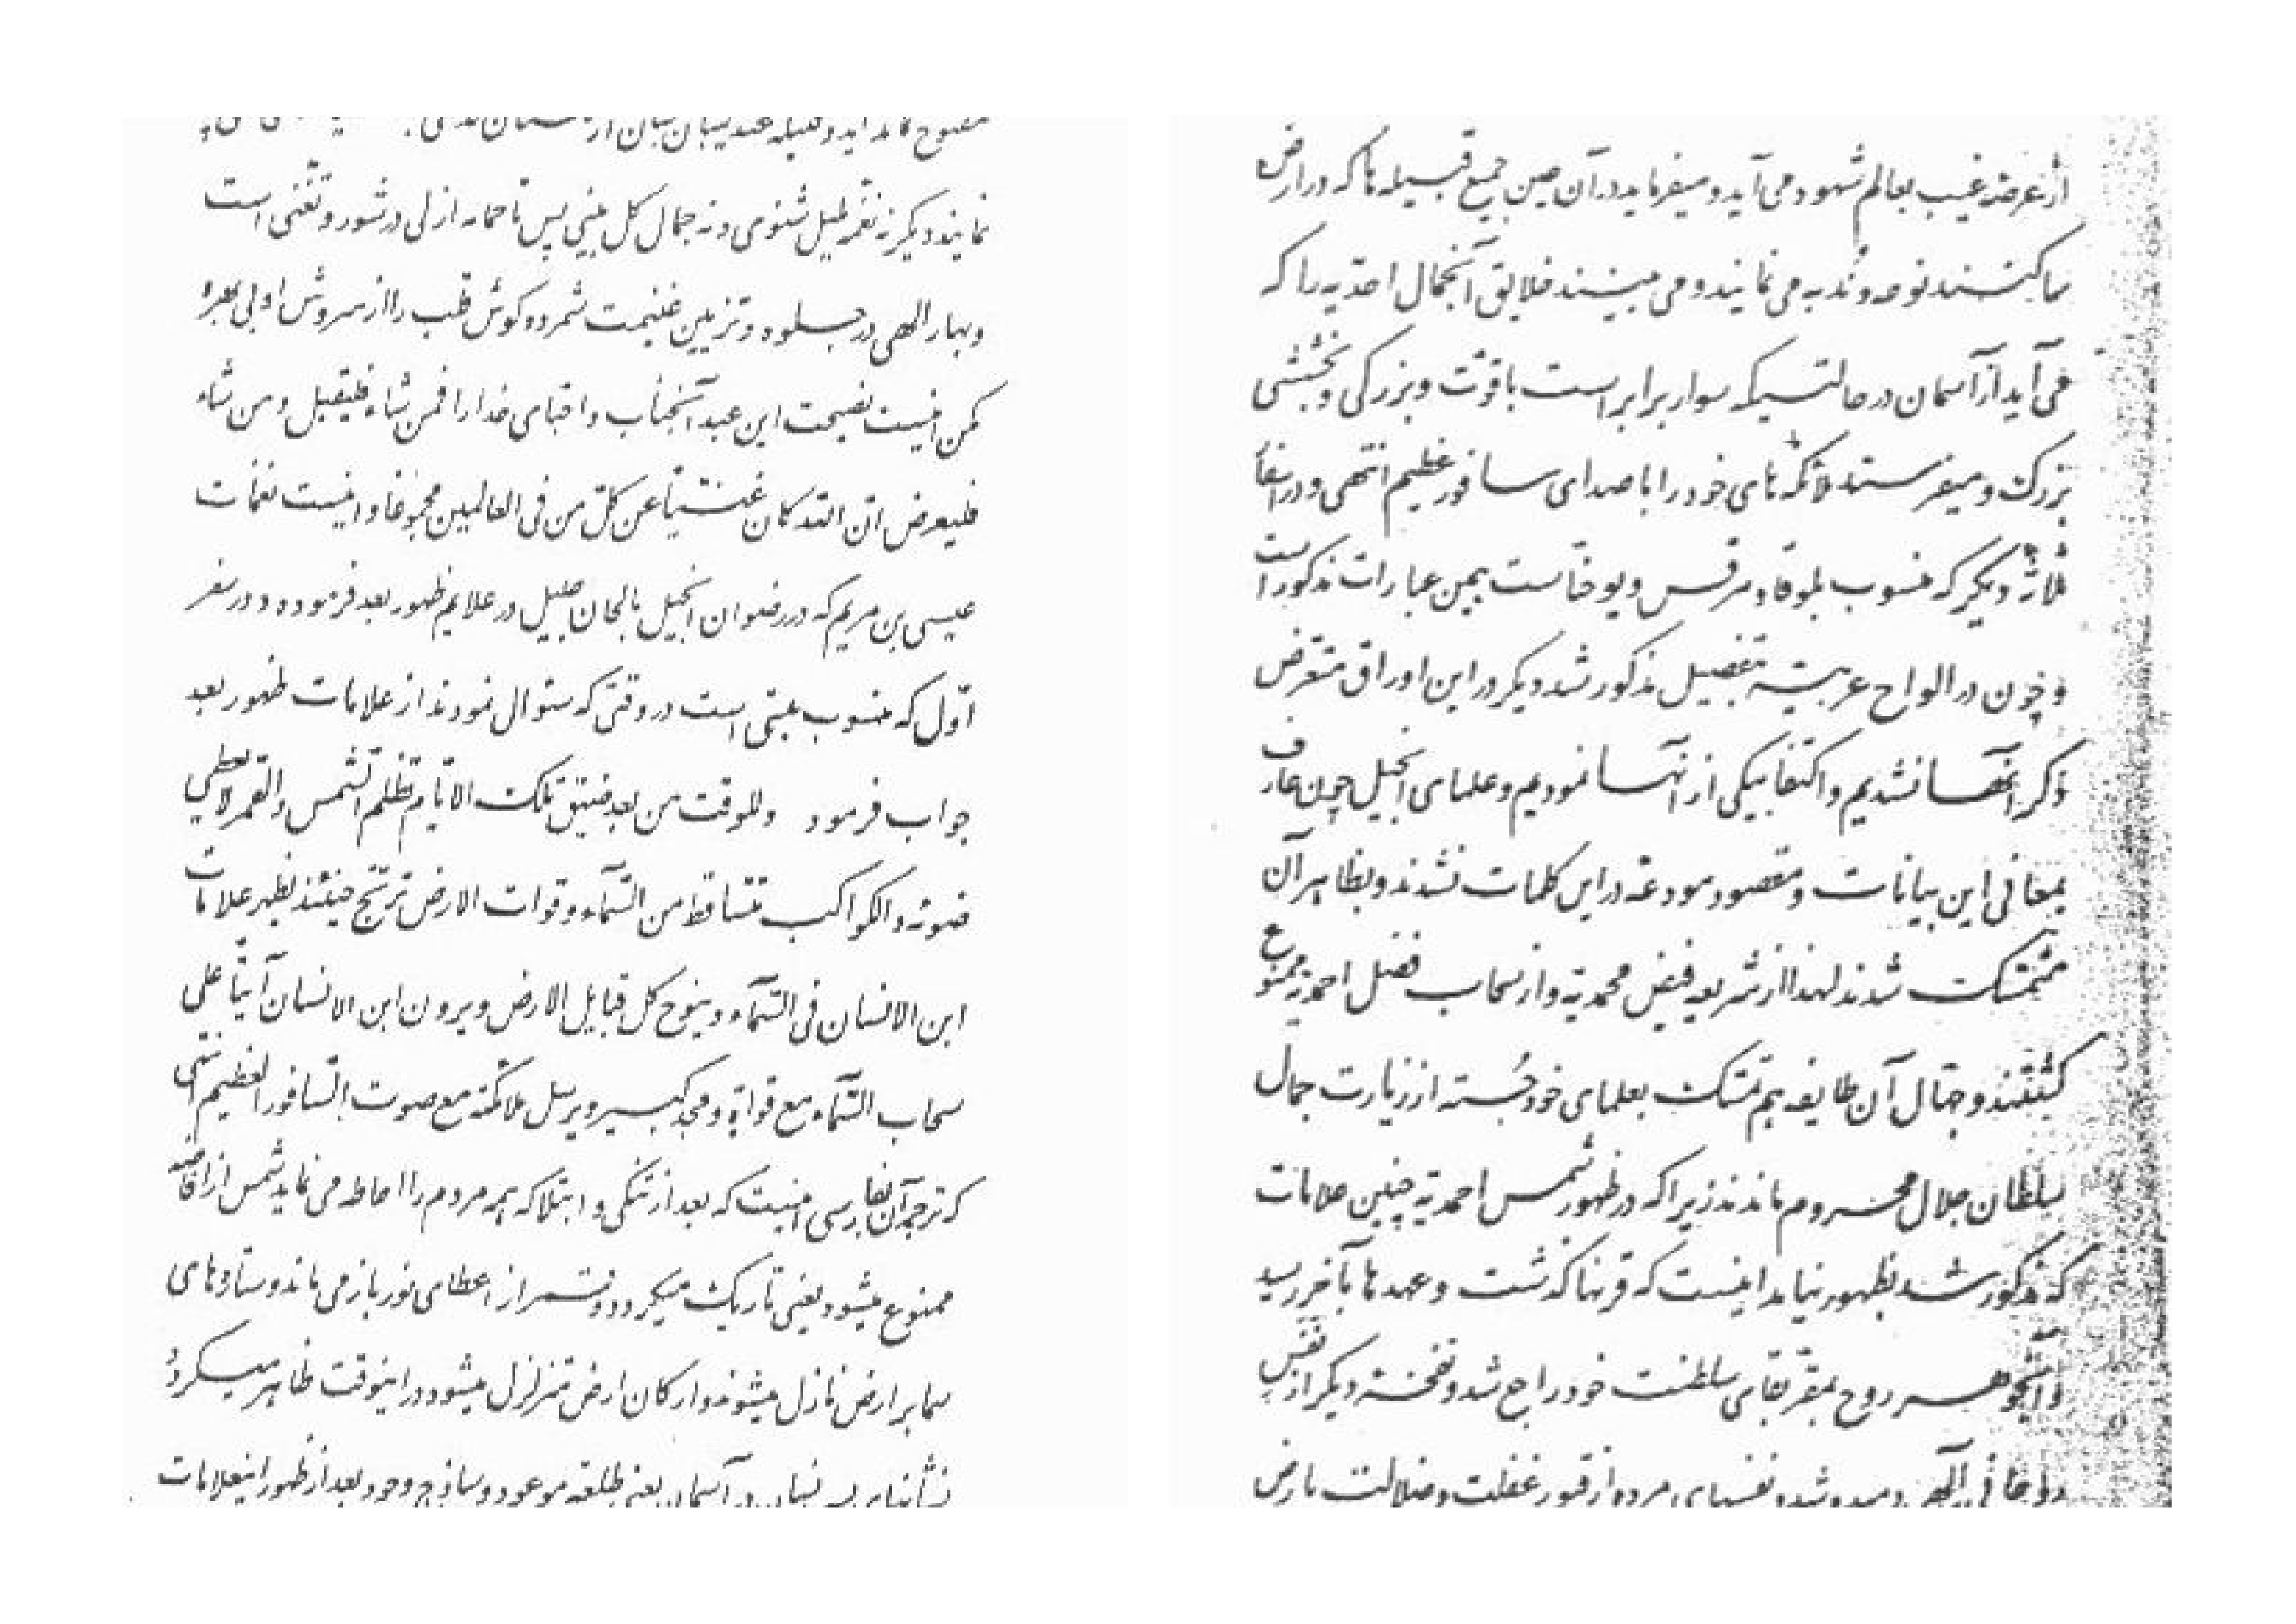 نمایند دیگر نه نغمهٔ بلبل شنوی و نه جمال گل بینی پس تا حمامهٔ ازلی در شور و تغنی است
و بهار الهی در جلوه و تزیین غنیمت شمرده گوش قلب را از سروش او بی بهره
مکن اینست نصیحت این عبد آنجناب و احبای خدا را فمن شاء فلیقبل و من شاء
فلیعرض ان الله کان غنیا عن کل من فی العالمین مجموعا و اینست نغمات
عیسی بن مریم که در رضوان انجیل بالحان جلیل در علایم ظهور بعد فرموده و در سفر
اول که منسوب بمتی است در وقتی که سئوال نمودند از علامات ظهور بعد
جواب فرمود وللوقت من بعد ضیق تلک الایام تظلم الشمس والقمر لا یعطی
ضوئه والکواکب تتساقط من السماء وقوات الارض ترتج حینئذ یظهر علامات
ابن الانسان فی السماء وینوح کل قبایل الارض ویرون ابن الانسان آتیا علی
سحاب السماء مع قواة ومجد کبیر ویرسل ملائکته مع صوت السافور العظیم انتهی
که ترجمهٔ آن بفارسی اینست که بعد از تنگی و ابتلا که همهٔ مردم را احاطه می نماید شمس از افاضه
ممنوع میشود یعنی تاریک میگردد و قمر از اعطای نور بازمی ماند و ستاره های
سما بر ارض نازل میشوند و ارکان ارض متزلزل میشود در اینوقت ظاهر میگردد
نشانهای پسر انسان در آسمان یعنی طلعت موعود و ساذج وجود بعد از ظهور اینعلامات
از عرصهٔ غیب بعالم شهود می آید و میفرماید در آن حین جمیع قبیله ها که در ارض
ساکنند نوحه و ندبه می نمایند و می بینند خلایق آنجمال احدیه را که
می آید از آسمان در حالتیکه سوار بر ابر است با قوت و بزرگی و بخششی
بزرگ و میفرستد ملائکه های خود را با صدای سافور عظیم انتهی و در اسفار
ثلاثه دیگر که منسوب بلوقا و مرقس و یوحناست همین عبارات مذکور است
و چون در الواح عربیه بتفصیل مذکور شد دیگر در این اوراق متعرض
ذکر آنها نشدیم و اکتفا بیکی از آنها نمودیم و علمای انجیل چون عارف
بمعانی این بیانات و مقصود مودعه در این کلمات نشدند و بظاهر آن
متمسک شدند لهذا از شریعه فیض محمدیه و از سحاب فضل احمدیه ممنوع
گشتند و جهال آن طایفه هم تمسک بعلمای خود جسته از زیارت جمال
سلطان جلال محروم ماندند زیرا که در ظهور شمس احمدیه چنین علامات
که مذکور شد بظهور نیامد اینست که قرنها گذشت و عهدها بآخر رسید
و آنجوهر روح بمقر بقای سلطنت خود راجع شد و نفخهٔ دیگر از نفس
روحانی الهی دمیده شد و نفسهای مرده از قبور غفلت و ضلالت بارض